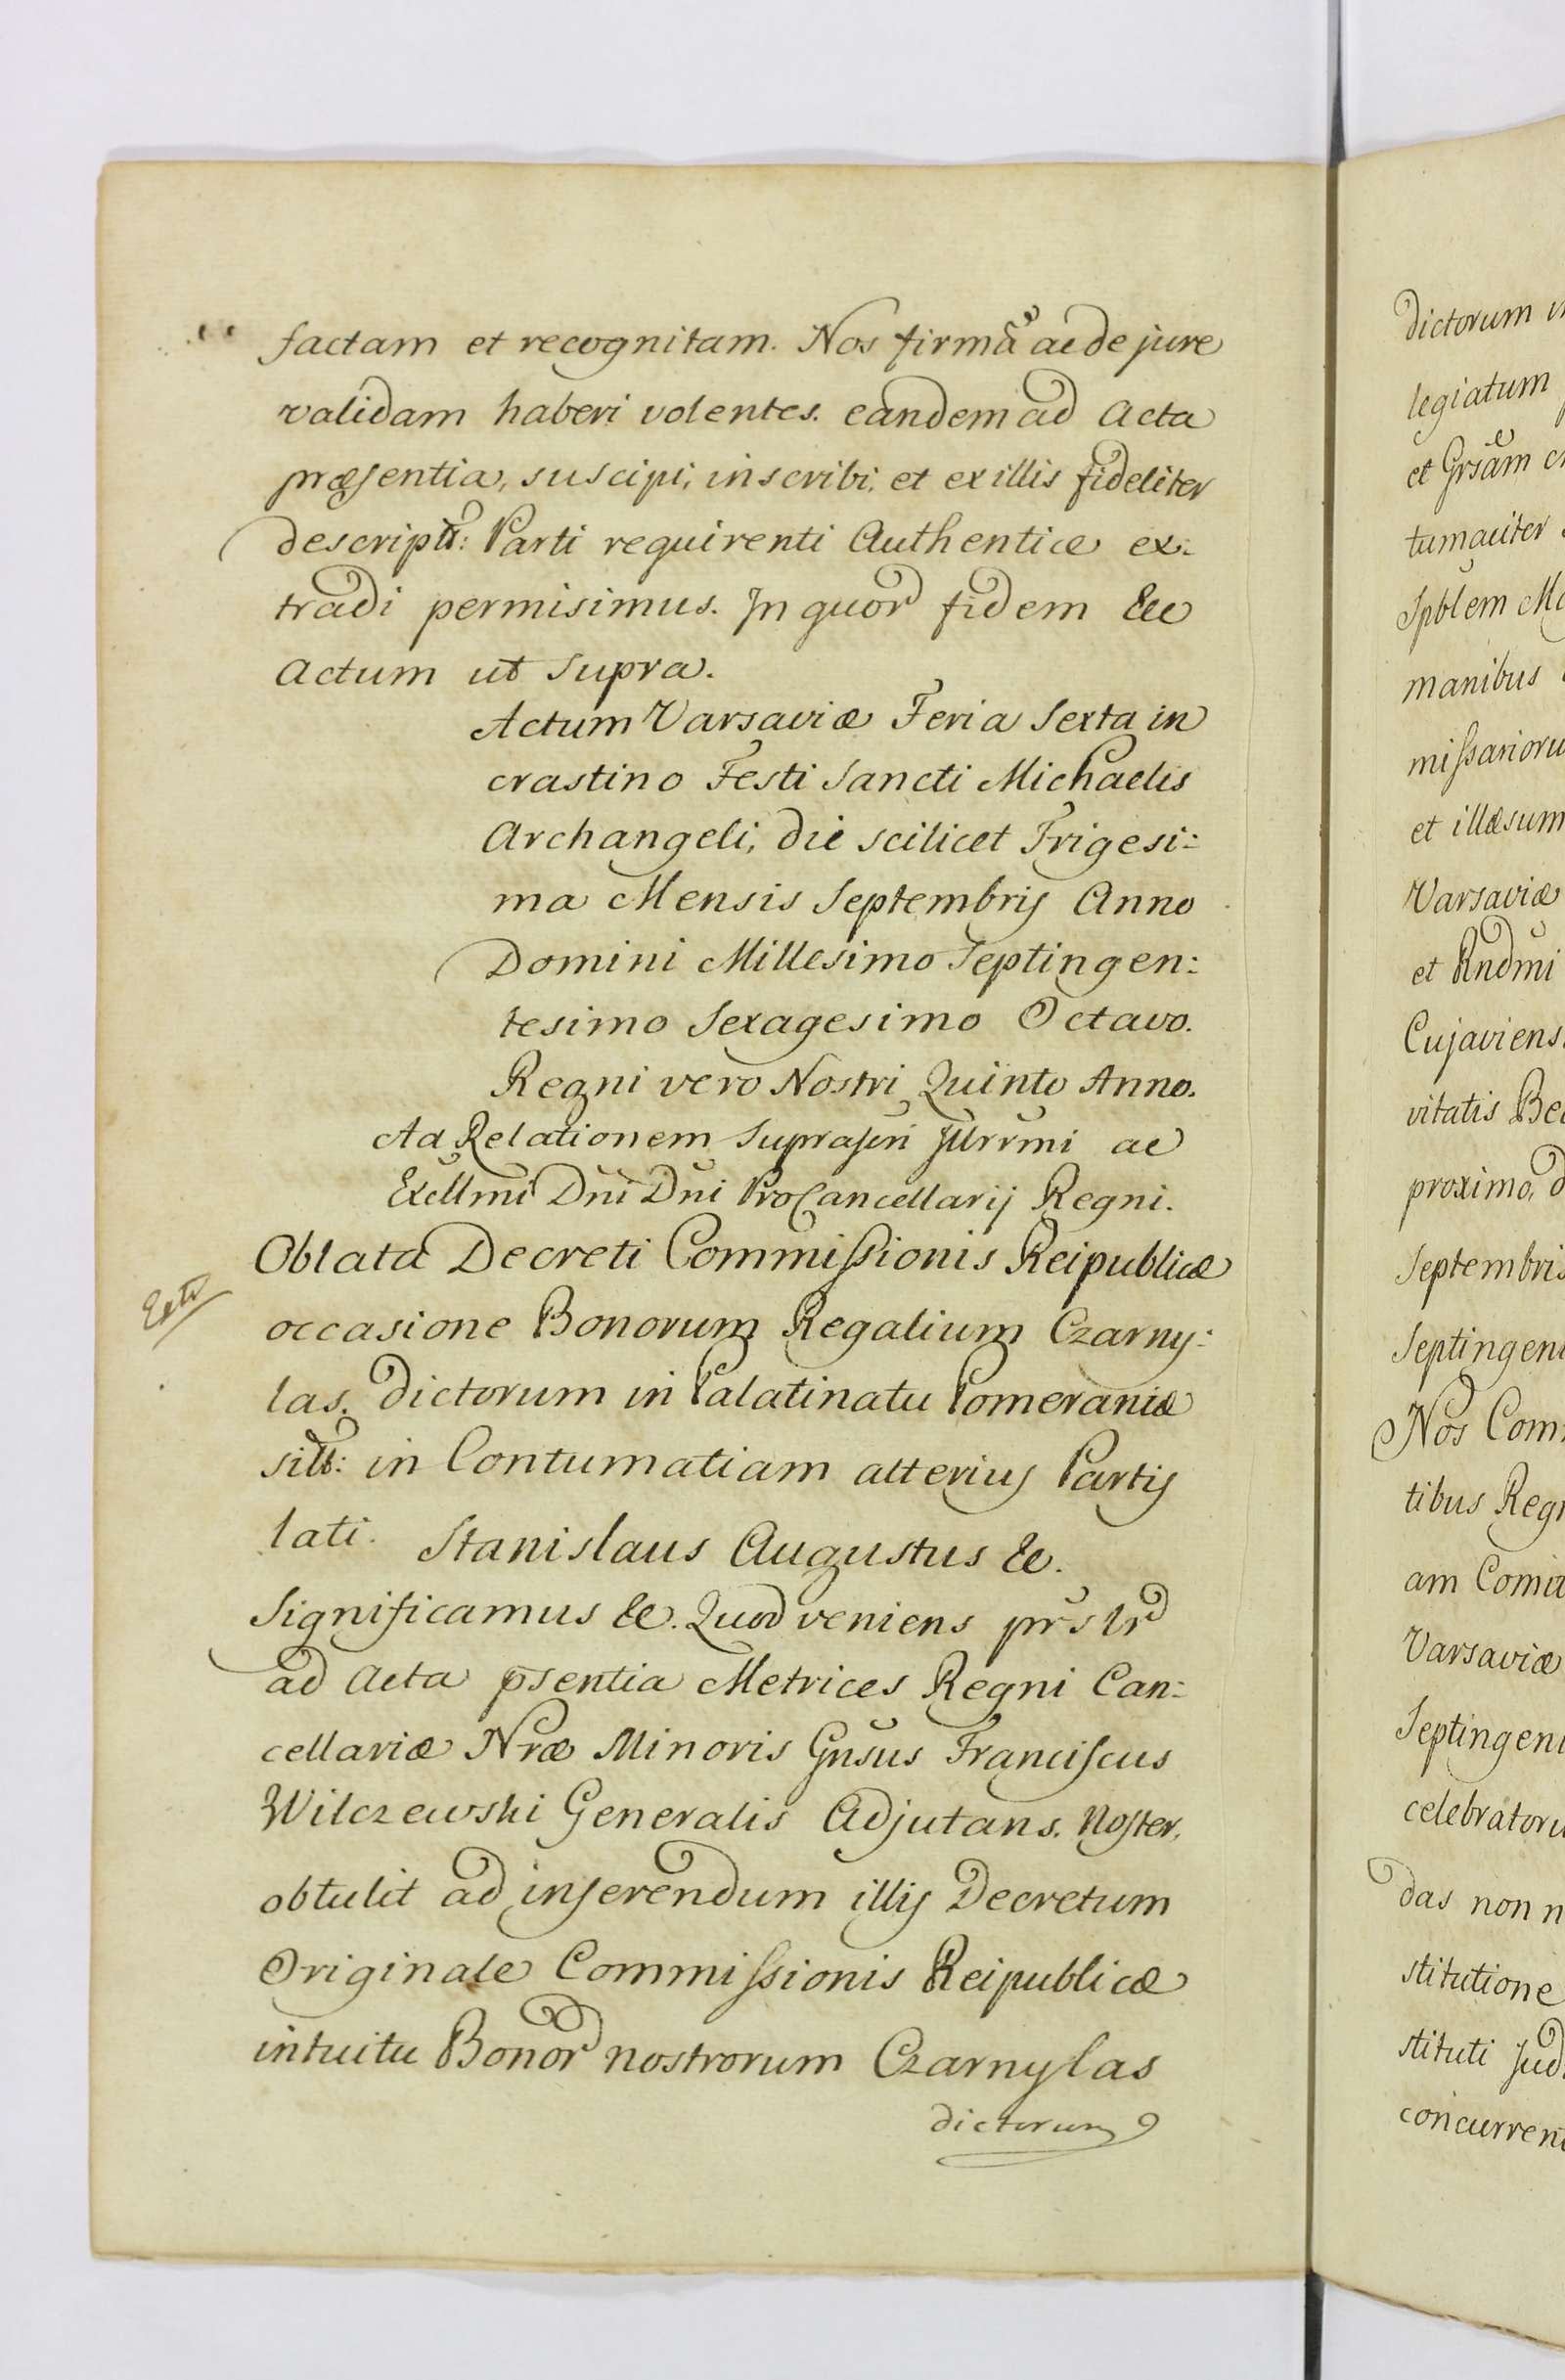 factam et recognitam. Nos firmã ac de jure
validam haberi volentes. eandem ad Acta
præsentia, suscipi, inscribi, et ex illis fideliter
descriptt: Parti requirenti Authentice ex:
tradi permisimus. In quor fidem &c
Actum ut supra.
Actum Varsaviæ Feria Sexta in
crastino Festi Sancti Michaelis
Archangeli, die scilicet Trigesi:
ma Mensis Septembris Anno
Domini Millesimo Septingen:
tesimo Sexagesimo Octavo.
Regni vero Nostri Quinto Anno.
Ad Relationem Suprascri Illrrmi ac
Excllmi Dni Dni ProCancellarij Regni.
Oblata Decreti Commissionis Reipublicæ
occasione Bonorum Regalium Czarny:
las. dictorum in Palatinatu Pomeraniæ
sitt: in Contumatiam alterius Partis
lati. Stanislaus Augustus &c.
Significamus &c. Quod veniens prs lr
ad Acta psentia Metrices Regni Can:
cellariæ Nræ Minoris Gnsus Franciscus
Wilczewski Generalis Adjutans. Noster.
obtulit ad inserendum illis Decretum
Originale Commissionis Reipublicæ
intuitu Bonor nostrorum Czarnylas
dictorum
dictorum
legiatum
et Grsãm
tumaciter
Spblem
manibus
missarioru
et illæsum
Varsaviæ
et Rndmi
Cujaviens
vitatis
proximo, d
Septembris
Septingen
Nos Com:
tibus Regn
am Comit
Varsaviæ
Septingen
celebratoru
das non n
stitutione
stituti Jud
concurren